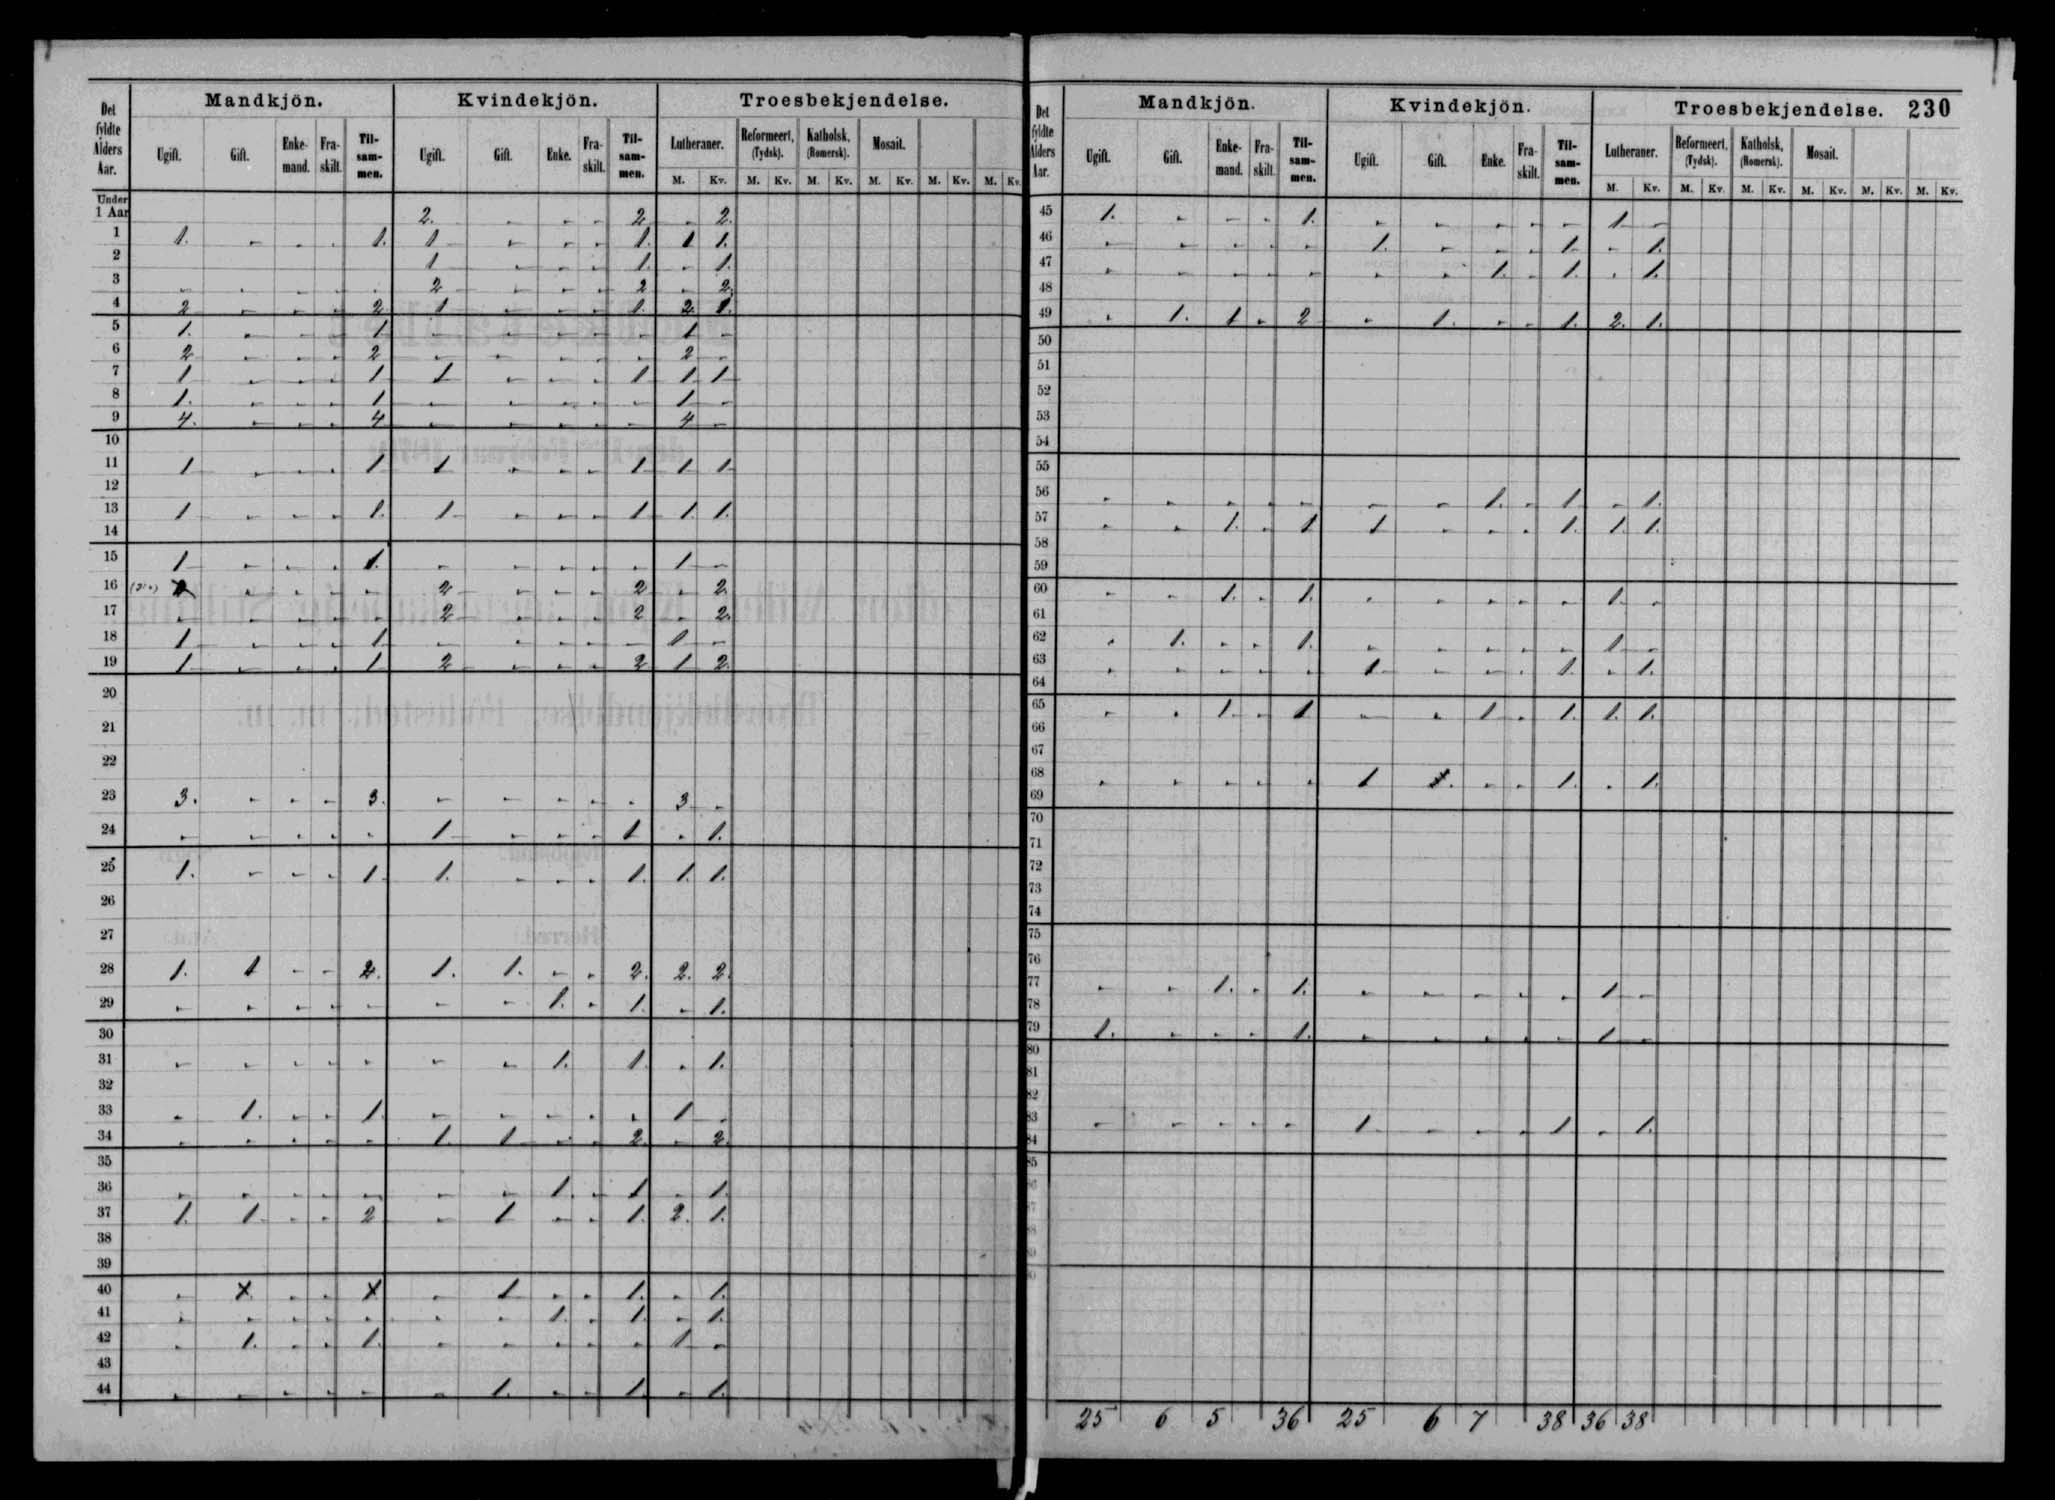 Det fyldte Alders Aar. Mandkjön. Kvindekjön. Troesbekjendelse.
Ugift. Gift. Enkemand. Fraskilt. Tilsammen. Ugift. Gift. Enke. Fraskilt. Tilsammen. Lutheraner. Reformeert, (Tydsk). Katholsk, (Romersk). Mosait.
M. Kv. M. Kv. M. Kv. M. Kv. M. Kv. M. Kv.
Under 1 Aar 2. - - - 2 - 2.
1 1. - - - 1. 1 - - - 1. 1 1.
2 1 - - - 1. - 1.
3 - - - - - 2 - - - 2 - 2.
4 2 - - - 2 1 - - - 1. 2. 1.
5 1. - - - 1 - - - - - 1 -
6 2 - - - 2 - - - - - 2 -
7 1 - - - 1 1 - - - 1 1 1
8 1. - - - 1 - - - - - 1 -
9 4. - - - 4 - - - - - 4 -
10
11 1 - - - 1 1 - - - 1 1 1
12
13 1 - - - 1. 1 - - - 1 1. 1.
14
15 1 - - - 1. - - - - - 1 -
16 - - - - 2 - - - 2 - 2.
17 - - - - - 2 - - - 2 - 2.
18 1 - - - 1 - - - - - 1 -
19 1 - - - 1 2 - - - 2 1 2.
20
21
22
23 3. - - - 3. - - - - - 3 -
24 - - - - - 1 - - - 1 - 1.
25 1. - - - 1. 1. - - - 1. 1. 1.
26
27
28 1. 1 - - 2. 1. 1. - - 2. 2. 2.
29 - - - - - - - 1. - 1. - 1.
30
31 - - - - - - - 1. - 1. - 1.
32
33 - 1. - - 1. - - - - - 1 -
34 - - - - - 1. 1 - - 2. - 2.
35
36 - - - - - - - 1. - 1 - 1.
37 1. 1 - - 2 - 1 - - 1. 2. 1.
38
39
40 - - - - 1 - - 1. - 1.
41 - - - - - - - 1. - 1. - 1.
42 - 1. - - 1. - - - - - 1 -
43
44 - - - - - - 1. - - 1. - 1.
Det fyldte Alders Aar. Mandkjön. Kvindekjön. Troesbekjendelse. 230
Ugift. Gift. Enkemand. Fraskilt. Tilsammen. Ugift. Gift. Enke. Fraskilt. Tilsammen. Lutheraner. Reformeert, (Tydsk). Katholsk, (Romersk). Mosait.
M. Kv. M. Kv. M. Kv. M. Kv. M. Kv. M. Kv.
45 1. - - - 1. - - - - - 1 -
46 - - - - - 1. - - - 1. - 1.
47 - - - - - - - 1. - 1. - 1.
48
49 - 1. 1 - 2 - 1. - - 1. 2. 1.
50
51
52
53
54
55
56 - - - - - - - 1. - 1. - 1.
57 - - 1. - 1 1 - - - 1. 1. 1.
58
59
60 - - 1. - 1. - - - - - 1. -
61
62 - 1. - - 1. - - - - - 1 -
63 - - - - - 1 - - - 1. - 1.
64
65 - - 1. - 1 - - 1 - 1. 1. 1.
66
67
68 - - - - - 1 - - - 1. - 1.
69
70
71
72
73
74
75
76
77 - - 1. - 1. - - - - - 1 -
78
79 1. - - - 1. - - - - - 1 -
80
81
82
83 - - - - - 1 - - - 1 - 1.
84
85
25 6 5 36 25 6 7 38 36 38